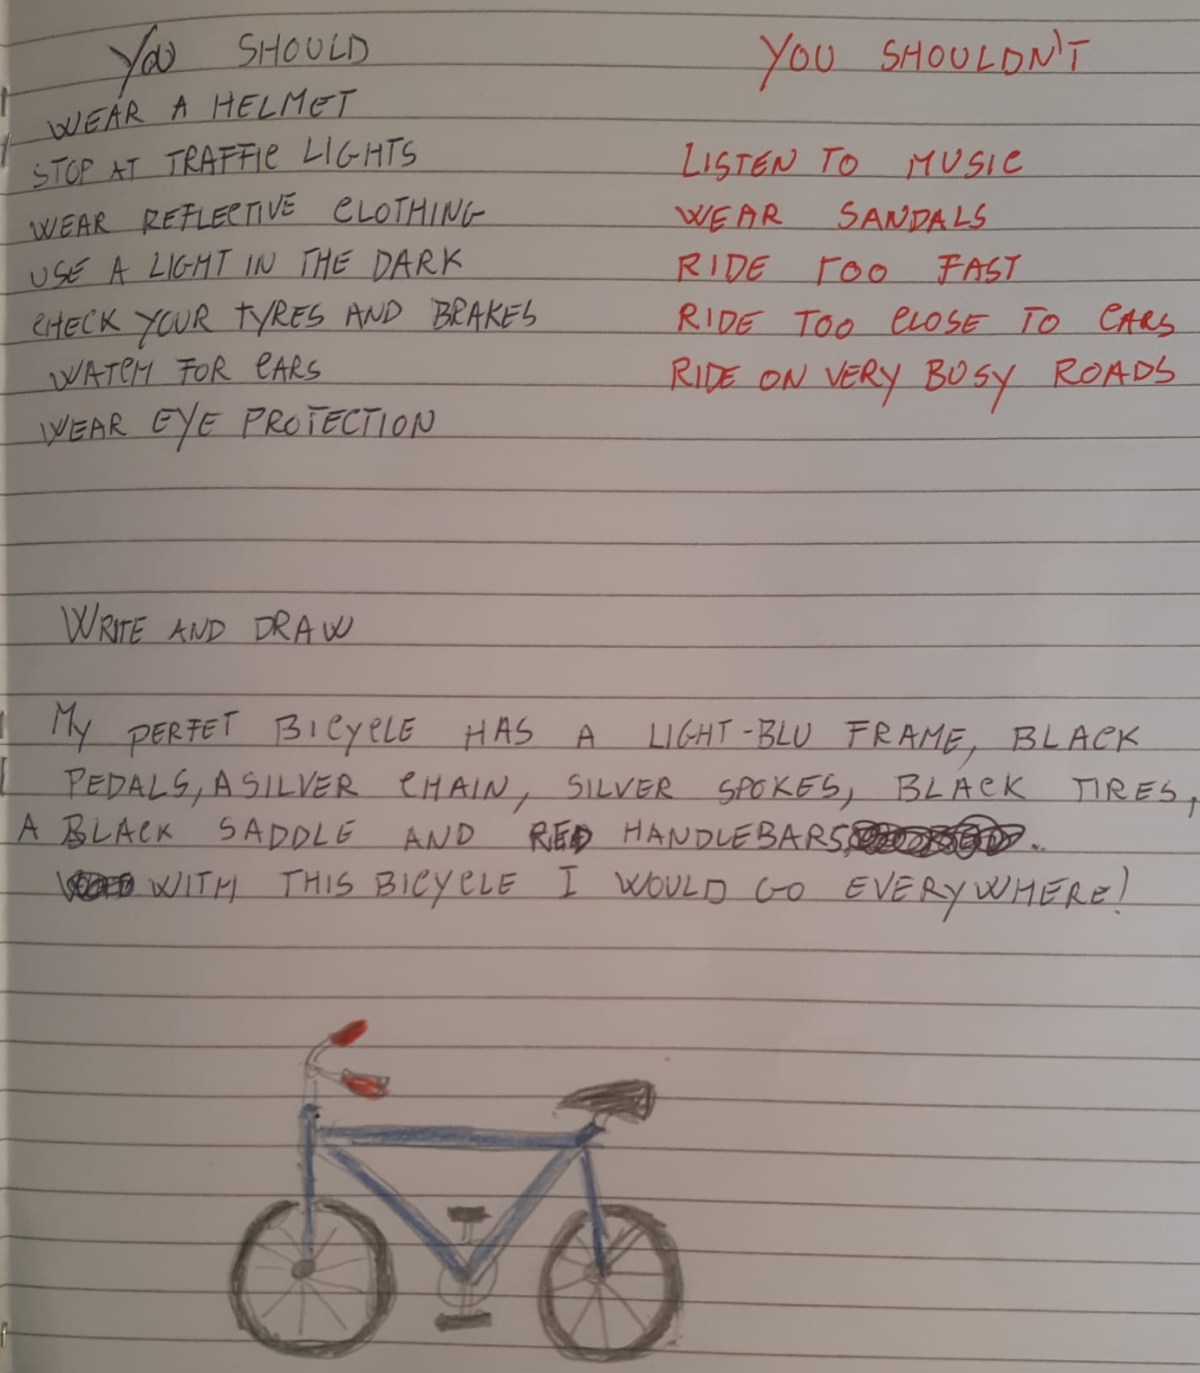 YOU SHOULD
WEAR A HELMET
STOP AT TRAFFIC LIGHTS
WEAR REFLECTIVE CLOTHING
USE A LIGHT IN THE DARK
CHECK YOUR TYRES AND BRAKES
WATCH FOR CARS
WEAR EYE PROTECTION
YOU SHOULDN'T
LISTEN TO MUSIC
WEAR SANDALS
RIDE TOO FAST
RIDE TOO CLOSE TO CARS
RIDE ON VERY BUSY ROADS
WRITE AND DRAW
My PERFET BICYCLE HAS A LIGHT-BLU FRAME, BLACK
PEDALS, A SILVER CHAIN, SILVER SPOKES, BLACK TIRES,
A BLACK SADDLE AND RED HANDLEBARS..
WITH THIS BICYCLE I WOULD GO EVERYWHERE!